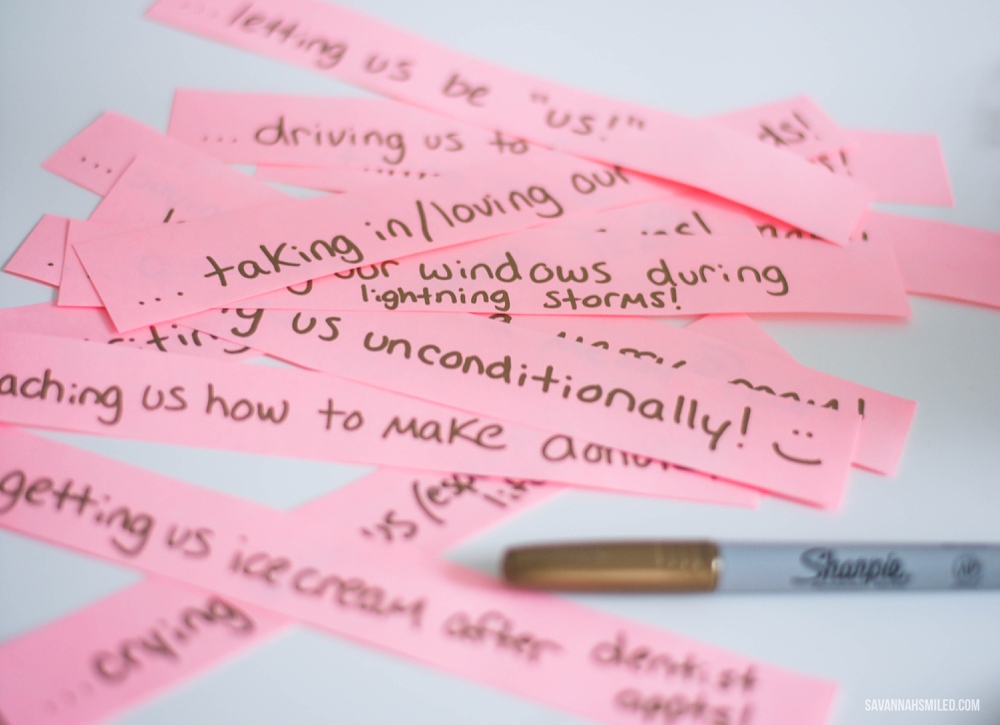 ... letting us be "us!"
... driving us to
... taking in/loving our
our windows during
lightning storms!
us unconditionally! :)
aching us how to make
getting us ice cream after dentist
appts!
... crying
Sharpie
SAVANNAHSMILED.COM